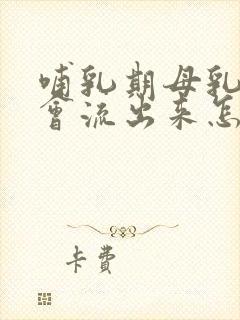 哺乳期母乳
會流出来怎
卡費